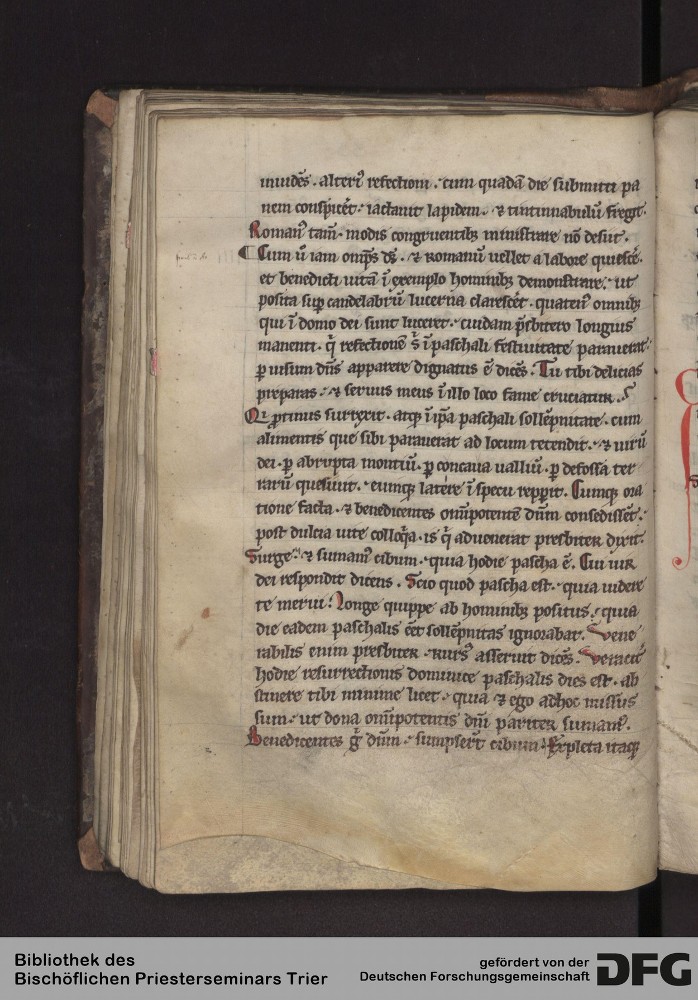 inuidēs . alteri᷒ refectioni . cum quadā die submitti pa
nem conspicēt᷒ . iactauit lapidem . ⁊ tintinnabulū fregit .
Roman᷒ tam̄ . modis congruentib᷒ ministrare nō desiit .
Cum ū iam omp̄s d̄s . ⁊ Romanū vellet a labore quiescē .
et benedicti uitā ī exemplo hominib᷒ demonstrare . ut
posita sup̱ candelabrū lucerna claresc̄et . quaten᷒ omnib᷒
qui ī domo dei sunt luceret . cuidam p̄sbitero longius
manenti . q̄ refectionē s̄ ī paschali festiuitate parauerat .
p̱ uisum dn̄s apparere dignatus ē dicēs . Tu tibi delicias
preparas . ⁊ seruus meus ī illo loco fame cruciatur .
Qi ꝓtinus surrexit . atq᷒ ī ip̄a paschali sollēpnitate . cum
alimentis que sibi parauerat ad locum tetendit . ⁊ uirū
dei . p̱ abrupta montiū . p̱ concaua ualliū . p̱ defossa ter
rarū quesiuit . eumq᷒ latere ī specu repp̱it . Cumq᷒ ora
tione facta . ⁊ benedicentes om̄ipotentē dn̄m consedissēt .
post dulcia uite colloq̄a . is q̄ aduenerat presbiter dixit .
Surge . ⁊ sumam᷒ cibum . quia hodie pascha ē . Cui uir
dei respondit dicens . Scio quod pascha est . quia uidere
te merui . Longe quippe ab hominib᷒ positus . quia
die eadem paschalis eēt sollēpnitas ignorabat . Vene
rabilis enim presbiter . rurs᷒ asseruit dicēs . Veracit̄
hodie resurrectionis dominice paschalis dies est . ab
stinere tibi minime licet . quia ⁊ ego adhoc missus
sum . ut dona om̄ipotentis dn̄i pariter sumam᷒ .
Benedicentes g̊ dn̄m . sumpserūt cibum . Expleta itaq᷒
Bibliothek des
Bischöflichen Priesterseminars Trier
gefördert von der
Deutschen Forschungsgemeinschaft
DFG